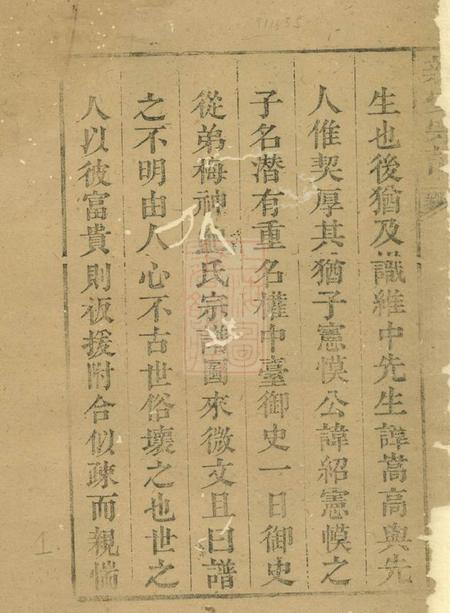 生也後猶及識維中先生諱嵩高與先
人惟契厚其猶子憲㦄公諱紹憲㦄之
子名潜有重名權中臺御史一日御史
從弟梅神 氏宗譜圖來微文且曰譜
之不明由人心不古世俗壞之也世之
人以彼富貴則扳援附合似疎而親惴